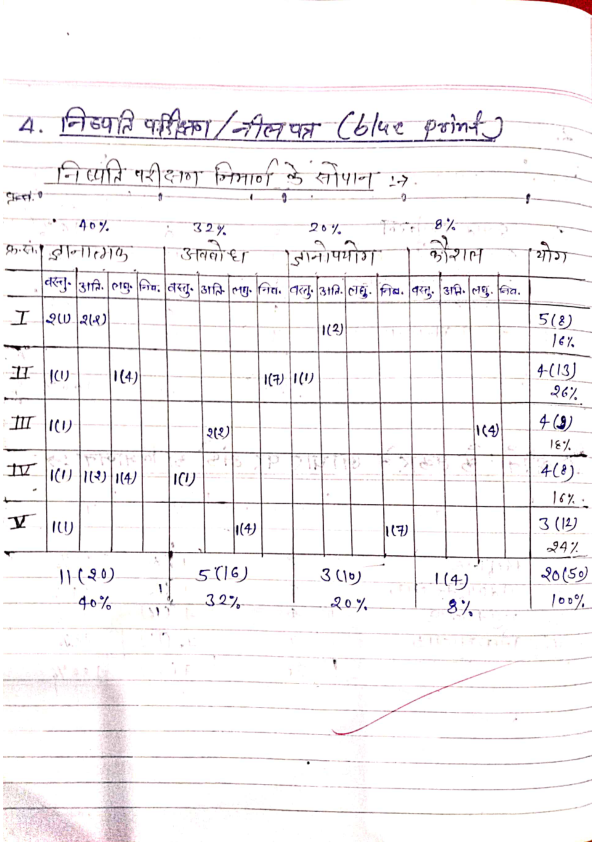 4. निष्पति परीक्षण / नील पत्र (blue print)
निष्पति परीक्षण निर्माण के सोपान :→
40% 32% 20% 8%
क्र.सं. ज्ञानात्मक अवबोध ज्ञानोपयोग कौशल योग
वस्तु. अति. लघु. निब. वस्तु. अति. लघु. निब. वस्तु. अति. लघु. निब. वस्तु. अति. लघु. निब.
I 2(1) 2(2) 1(2) 5(8)
16%
II 1(1) 1(4) 1(7) 1(1) 4(13)
26%
III 1(1) 2(2) 1(4) 4(9)
18%
IV 1(1) 1(2) 1(4) 1(1) 4(8)
16%
V 1(1) 1(4) 1(7) 3(12)
24%
11(20) 5(16) 3(10) 1(4) 20(50)
40% 32% 20% 8% 100%